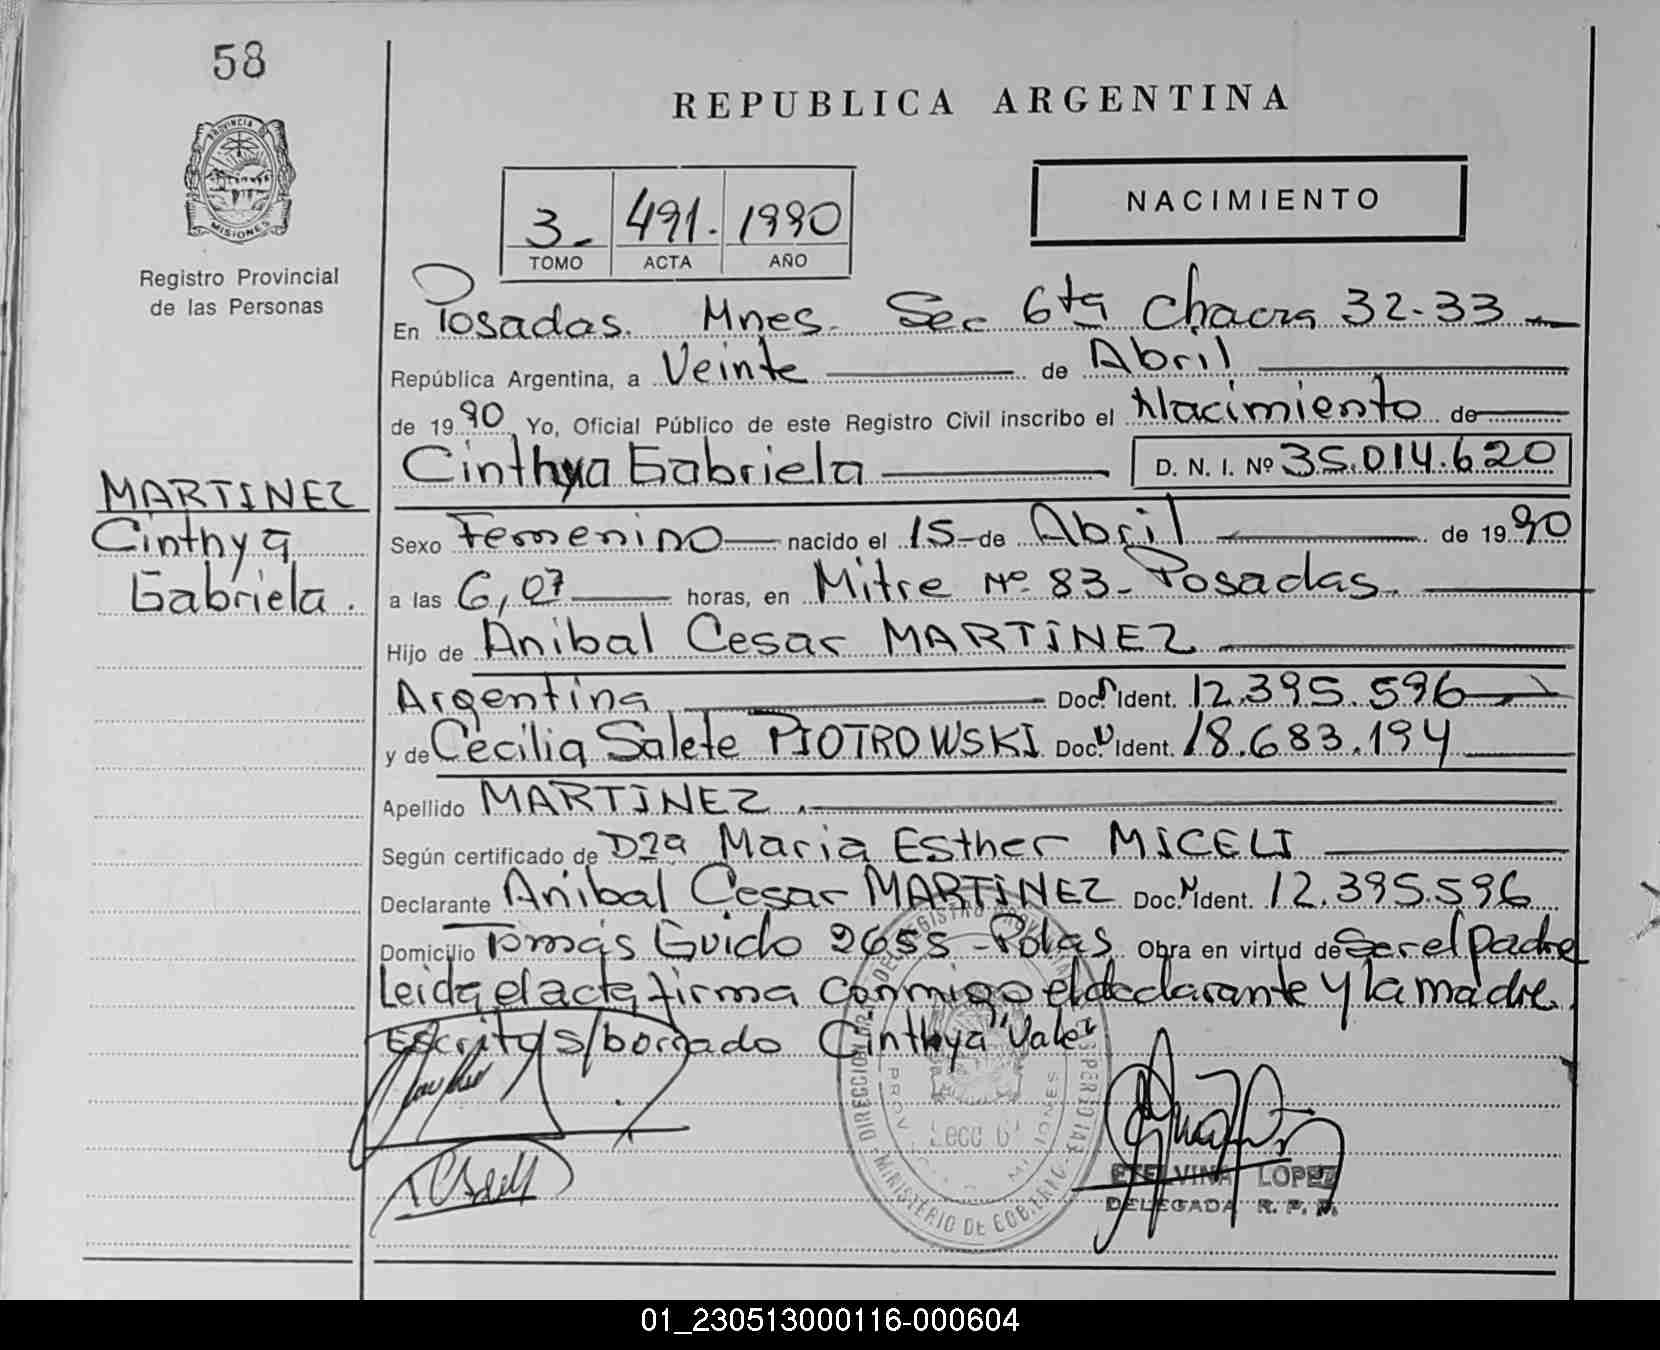 58
REPUBLICA ARGENTINA
PROVINCIA DE
MISIONES
Registro Provincial
de las Personas
3- 491. 1990
TOMO ACTA AÑO
NACIMIENTO
En Posadas. Mnes. Sec 6ta Chacra 32-33
República Argentina, a Veinte de Abril
de 1990 Yo, Oficial Público de este Registro Civil inscribo el Nacimiento de
Cinthya Gabriela D. N. I. Nº 35.014.620
MARTINEZ
Cinthya
Gabriela.
Sexo Femenino nacido el 15 de Abril de 1990
a las 6,07 horas, en Mitre Nº 83- Posadas.
Hijo de Anibal Cesar MARTINEZ
Argentina Doc. Ident. 12.395.596
y de Cecilia Salete PIOTROWSKI Doc. Ident. 18.683.194
Apellido MARTINEZ
Según certificado de Dra Maria Esther MICELI
Declarante Anibal Cesar MARTINEZ Doc. Ident. 12.395.596
Domicilio Tomás Guido 2655 - Pdas. Obra en virtud de Ser el padre
Leida el acta firma conmigo el declarante y la madre.
Escrito s/borrado Cinthya "Vale"
Secc 6ª
MINISTERIO DE GOBIERNO
ETELVINA LOPEZ
DELEGADA R. P. P.
01_230513000116-000604